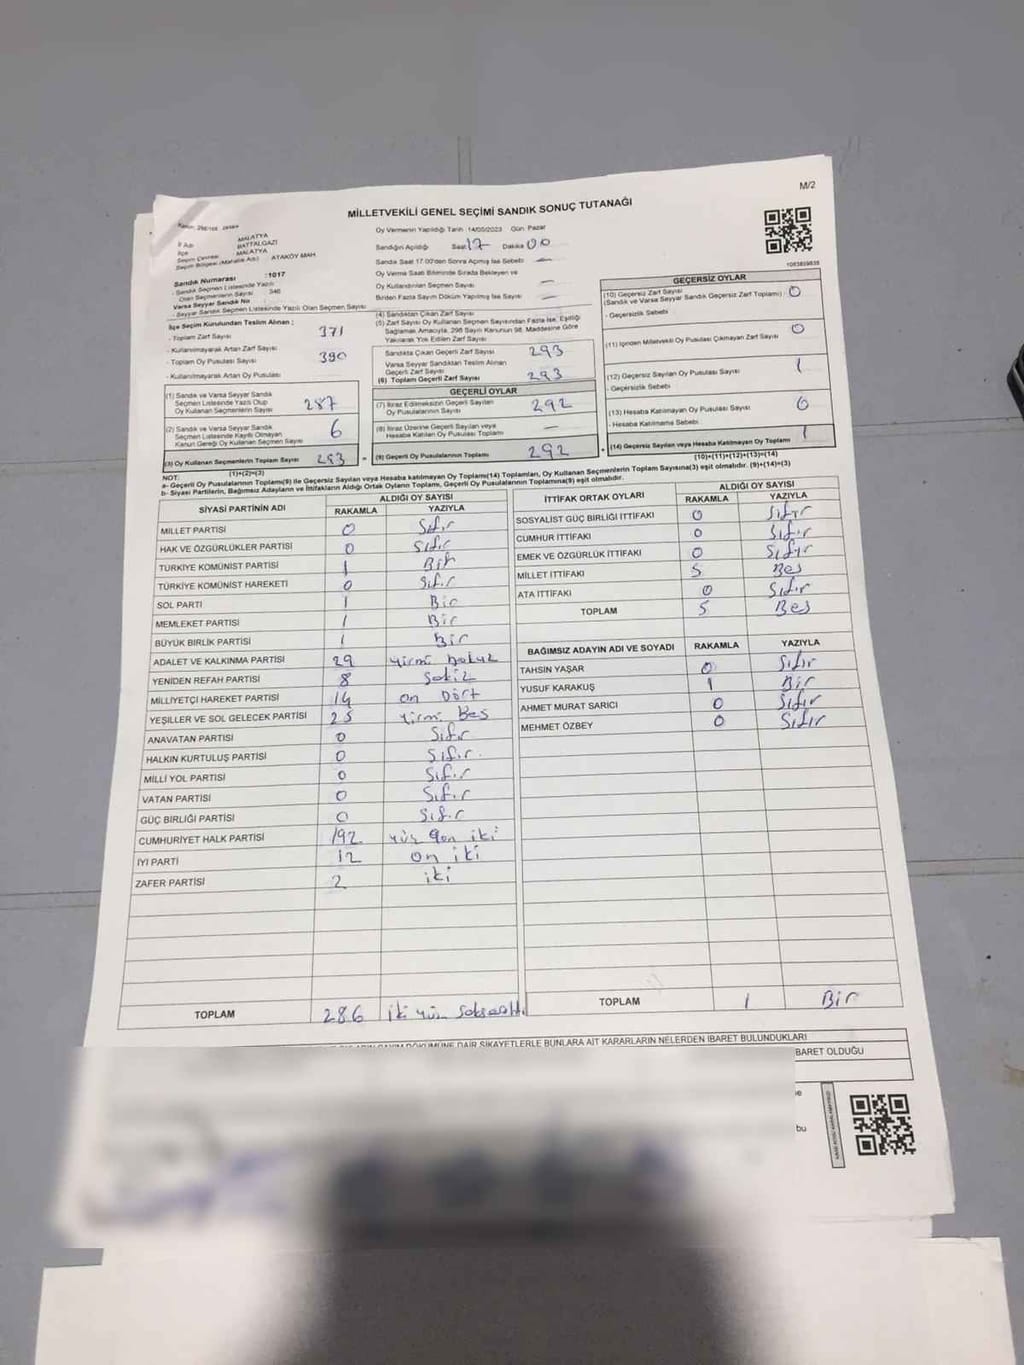 M/2
MİLLETVEKİLİ GENEL SEÇİMİ SANDIK SONUÇ TUTANAĞI
İl Adı MALATYA
İlçe BATTALGAZİ
Seçim Çevresi MALATYA
Seçim Bölgesi (Mahalle Adı) : ATAKÖY MAH
Sandık Numarası :1017
Sandık Seçmen Listesinde Yazılı
Olan Seçmenlerin Sayısı 346
Varsa Seyyar Sandık No
Seyyar Sandık Seçmen Listesinde Yazılı Olan Seçmen Sayısı
İlçe Seçim Kurulundan Teslim Alınan ;
- Toplam Zarf Sayısı 371
- Kullanılmayarak Artan Zarf Sayısı
- Toplam Oy Pusulası Sayısı 390
- Kullanılmayarak Artan Oy Pusulası
(1) Sandık ve Varsa Seyyar Sandık
Seçmen Listesinde Yazılı Olup
Oy Kullanan Seçmenlerin Sayısı 287
(2) Sandık ve Varsa Seyyar Sandık
Seçmen Listesinde Kayıtlı Olmayan
Kanun Gereği Oy Kullanan Seçmen Sayısı 6
(3) Oy Kullanan Seçmenlerin Toplam Sayısı 293
(1)+(2)=(3)
Oy Vermenin Yapıldığı Tarih :14/05/2023 Gün Pazar
Sandığın Açıldığı Saat 17 Dakika 00
Sandık Saat 17.00'den Sonra Açılmış İse Sebebi —
Oy Verme Saati Bitiminde Sırada Bekleyen ve
Oy Kullandırılan Seçmen Sayısı —
Birden Fazla Sayım Döküm Yapılmış İse Sayısı —
(4) Sandıktan Çıkan Zarf Sayısı
(5) Zarf Sayısı Oy Kullanan Seçmen Sayısından Fazla İse, Eşitliği
Sağlamak Amacıyla, 298 Sayılı Kanunun 98. Maddesine Göre
Yakılarak Yok Edilen Zarf Sayısı
Sandıkta Çıkan Geçerli Zarf Sayısı 293
Varsa Seyyar Sandıktan Teslim Alınan
Geçerli Zarf Sayısı
(6) Toplam Geçerli Zarf Sayısı 293
GEÇERLİ OYLAR
(7) İtiraz Edilmeksizin Geçerli Sayılan
Oy Pusulalarının Sayısı 292
(8) İtiraz Üzerine Geçerli Sayılan veya
Hesaba Katılan Oy Pusulaları Toplamı —
(9) Geçerli Oy Pusulalarının Toplamı 292
1083809835
GEÇERSİZ OYLAR
(10) Geçersiz Zarf Sayısı 0
(Sandık ve Varsa Seyyar Sandık Geçersiz Zarf Toplamı)
- Geçersizlik Sebebi
(11) İçinden Milletvekili Oy Pusulası Çıkmayan Zarf Sayısı 0
(12) Geçersiz Sayılan Oy Pusulası Sayısı 1
- Geçersizlik Sebebi
(13) Hesaba Katılmayan Oy Pusulası Sayısı 0
- Hesaba Katılmama Sebebi
(14) Geçersiz Sayılan veya Hesaba Katılmayan Oy Toplamı 1
(10)+(11)+(12)+(13)=(14)
NOT:
a- Geçerli Oy Pusulalarının Toplamı(9) ile Geçersiz Sayılan veya Hesaba katılmayan Oy Toplamı(14) Toplamları, Oy Kullanan Seçmenlerin Toplam Sayısına(3) eşit olmalıdır. (9)+(14)=(3)
b- Siyasi Partilerin, Bağımsız Adayların ve İttifakların Aldığı Ortak Oyların Toplamı, Geçerli Oy Pusulalarının Toplamına(9) eşit olmalıdır.
SİYASİ PARTİNİN ADI ALDIĞI OY SAYISI
RAKAMLA YAZIYLA
MİLLET PARTİSİ 0 Sıfır
HAK VE ÖZGÜRLÜKLER PARTİSİ 0 Sıfır
TÜRKİYE KOMÜNİST PARTİSİ 1 Bir
TÜRKİYE KOMÜNİST HAREKETİ 0 Sıfır
SOL PARTİ 1 Bir
MEMLEKET PARTİSİ 1 Bir
BÜYÜK BİRLİK PARTİSİ 1 Bir
ADALET VE KALKINMA PARTİSİ 29 Yirmi Dokuz
YENİDEN REFAH PARTİSİ 8 Sekiz
MİLLİYETÇİ HAREKET PARTİSİ 14 on Dört
YEŞİLLER VE SOL GELECEK PARTİSİ 25 Yirmi Beş
ANAVATAN PARTİSİ 0 Sıfır
HALKIN KURTULUŞ PARTİSİ 0 Sıfır
MİLLİ YOL PARTİSİ 0 Sıfır
VATAN PARTİSİ 0 Sıfır
GÜÇ BİRLİĞİ PARTİSİ 0 Sıfır
CUMHURİYET HALK PARTİSİ 192 yüz 9on iki
İYİ PARTİ 12 on iki
ZAFER PARTİSİ 2 iki
TOPLAM 286 iki yüz seksenaltı
İTTİFAK ORTAK OYLARI ALDIĞI OY SAYISI
RAKAMLA YAZIYLA
SOSYALİST GÜÇ BİRLİĞİ İTTİFAKI 0 Sıfır
CUMHUR İTTİFAKI 0 Sıfır
EMEK VE ÖZGÜRLÜK İTTİFAKI 0 Sıfır
MİLLET İTTİFAKI 5 Beş
ATA İTTİFAKI 0 Sıfır
TOPLAM 5 Beş
BAĞIMSIZ ADAYIN ADI VE SOYADI RAKAMLA YAZIYLA
TAHSİN YAŞAR 0 Sıfır
YUSUF KARAKUŞ 1 Bir
AHMET MURAT SARICI 0 Sıfır
MEHMET ÖZBEY 0 Sıfır
TOPLAM 1 Bir
DÖKÜMÜNE DAİR ŞİKAYETLERLE BUNLARA AİT KARARLARIN NELERDEN İBARET BULUNDUKLARI
BARET OLDUĞU
bu